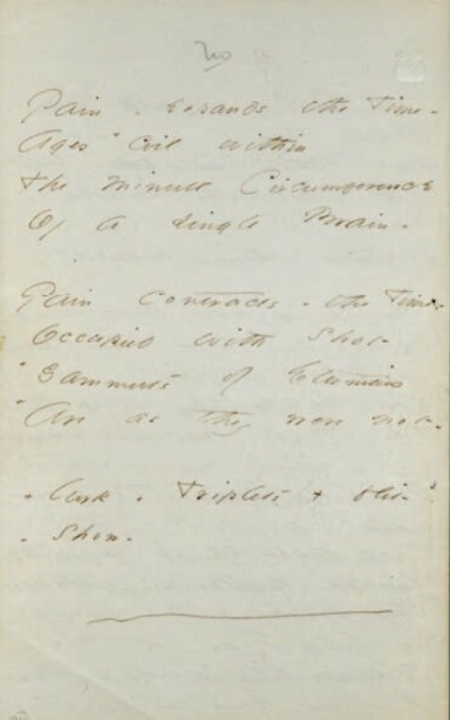 Pain - expands the Time -
Ages + coil within
The minute Circumference
Of a single Brain -
Pain contracts - the Time -
Occupied with Shot -
+ Gammuts of Eternities
+ Are as they were not -
+ lurk + Triplets +
+ Show -